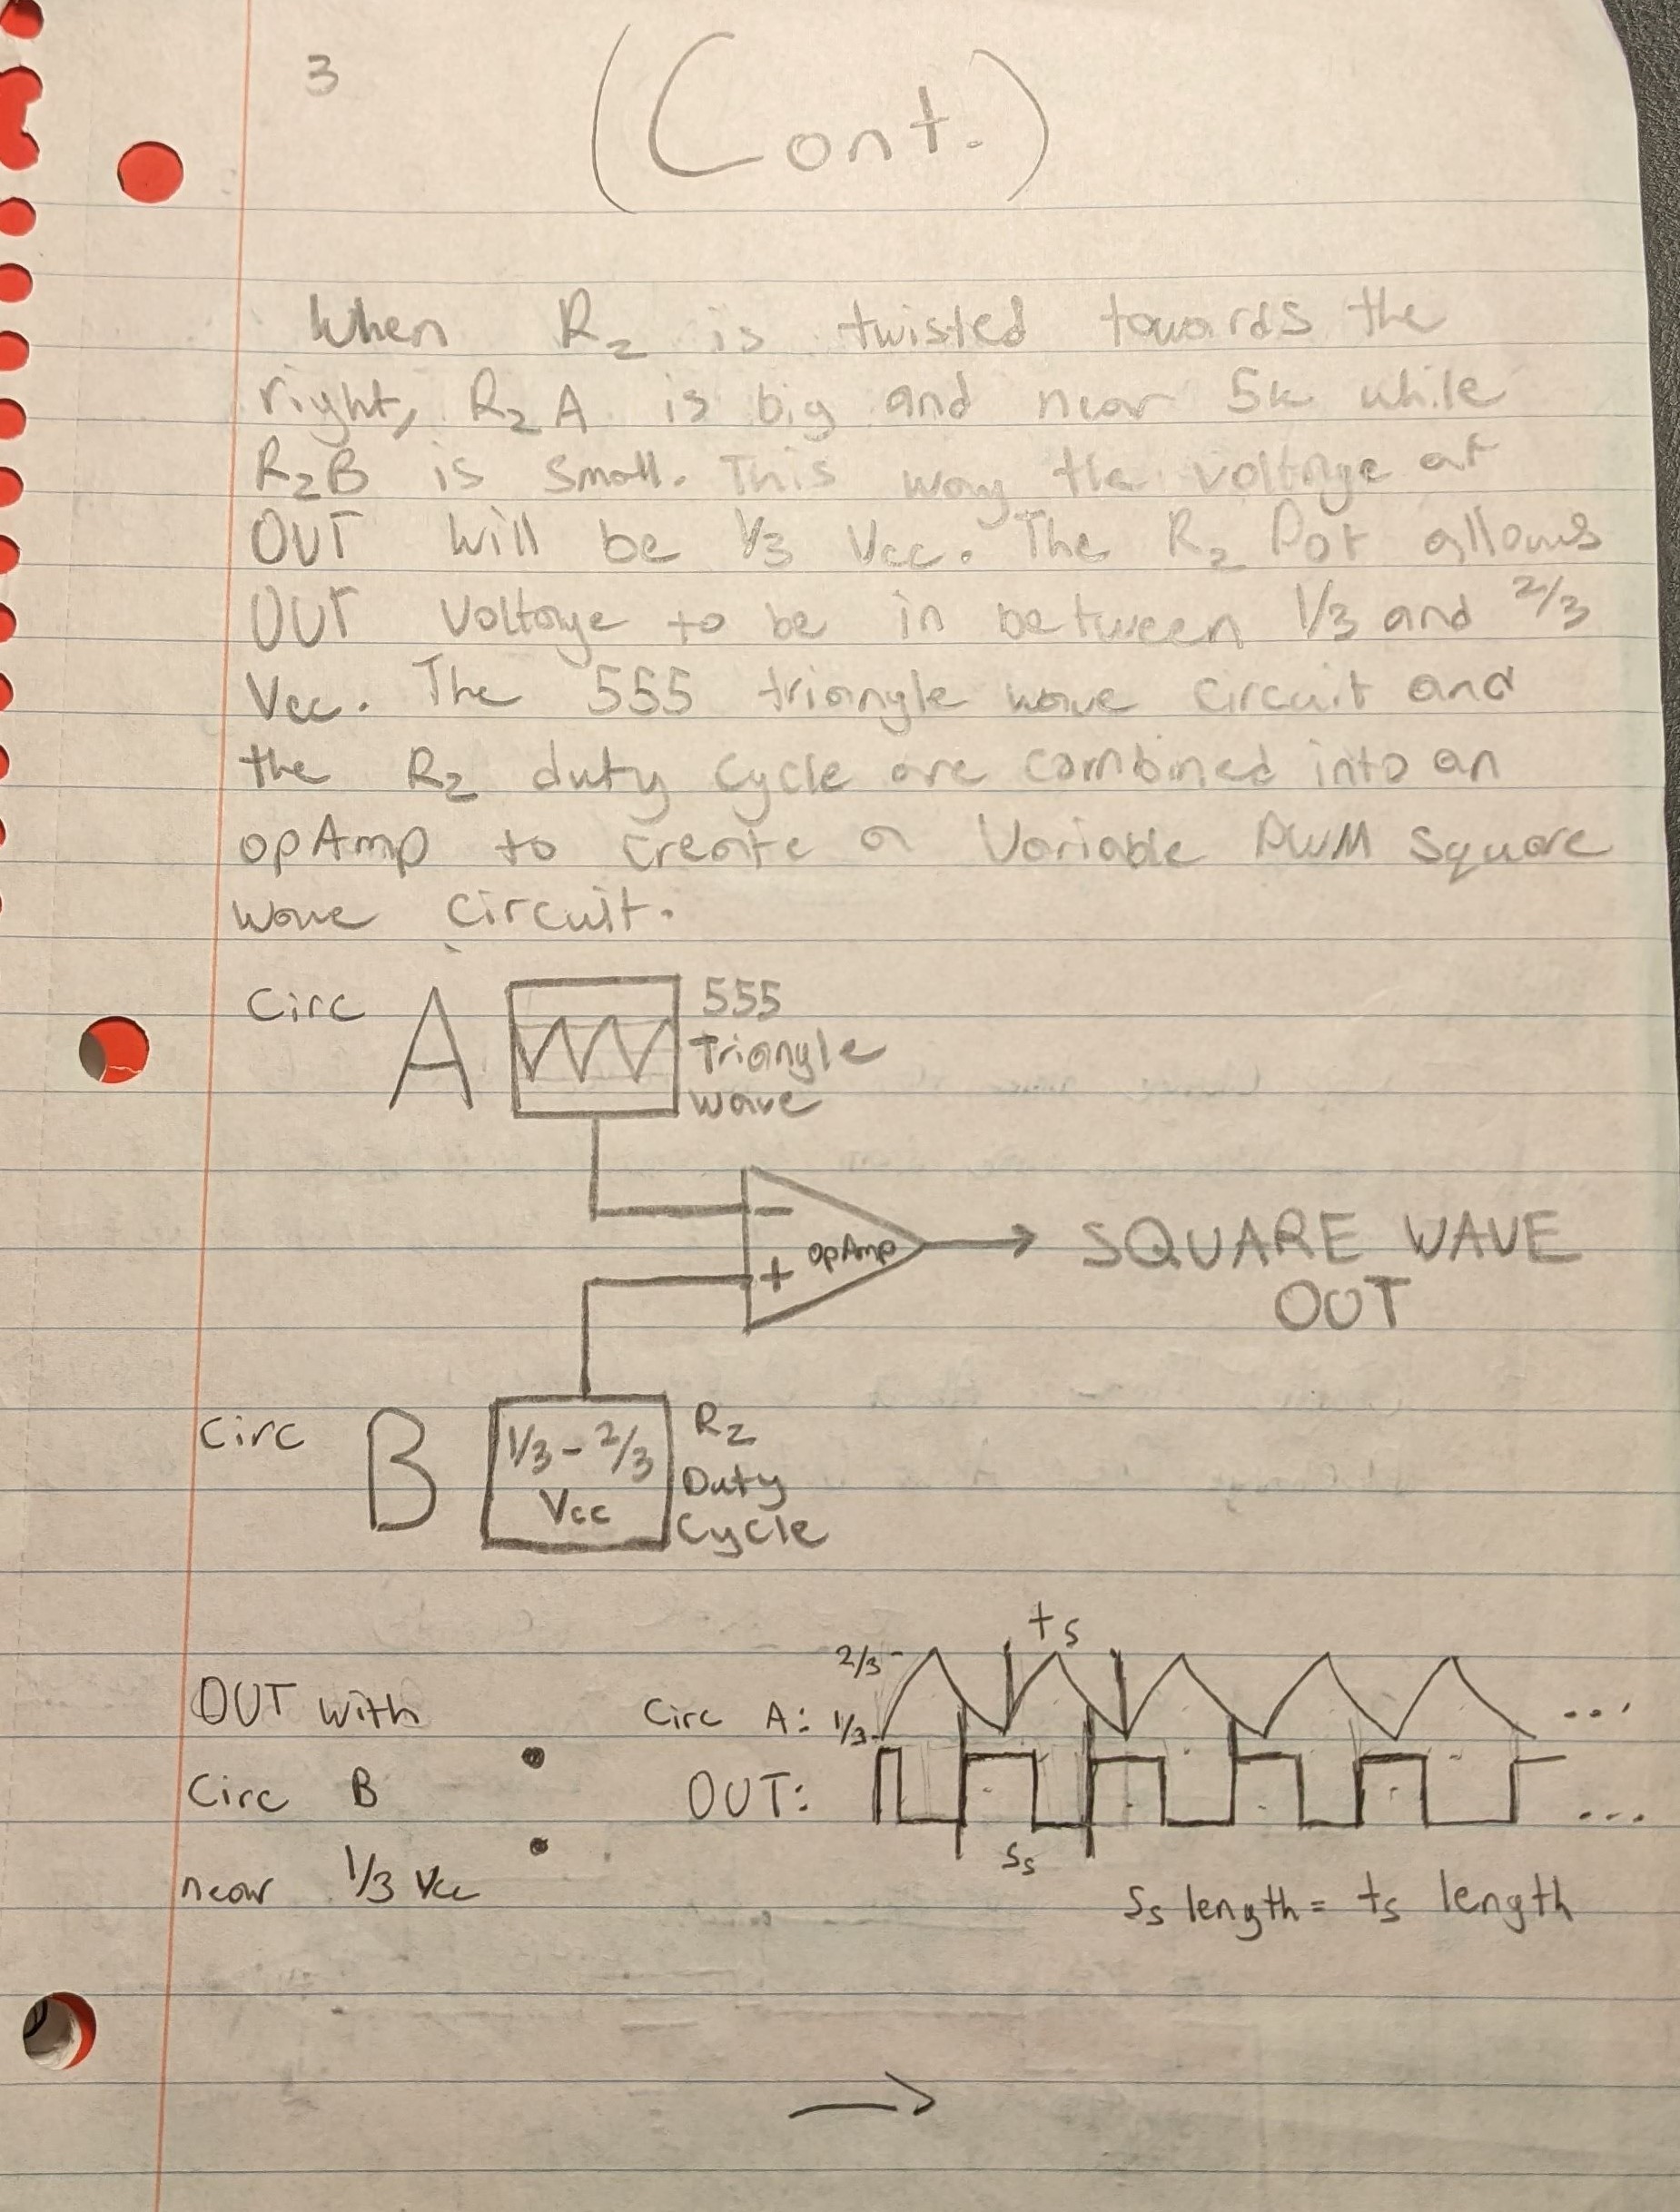 3
(Cont.)
When R2 is twisted towards the
right, R2A is big and near 5k while
R2B is small. This way the voltage at
OUT will be 1/3 Vcc. The R2 Pot allows
OUT Voltage to be in between 1/3 and 2/3
Vcc. The 555 triangle wave circuit and
the R2 duty cycle are combined into an
opAmp to create a Variable PWM square
wave circuit.
Circ A
555
Triangle
wave
-
+ opAmp
SQUARE WAVE
OUT
Circ B
1/3 - 2/3
Vcc
R2
Duty
Cycle
ts
2/3
OUT with
Circ A: 1/3 ...
Circ B
OUT: ...
ss
near 1/3 Vcc
ss length = ts length